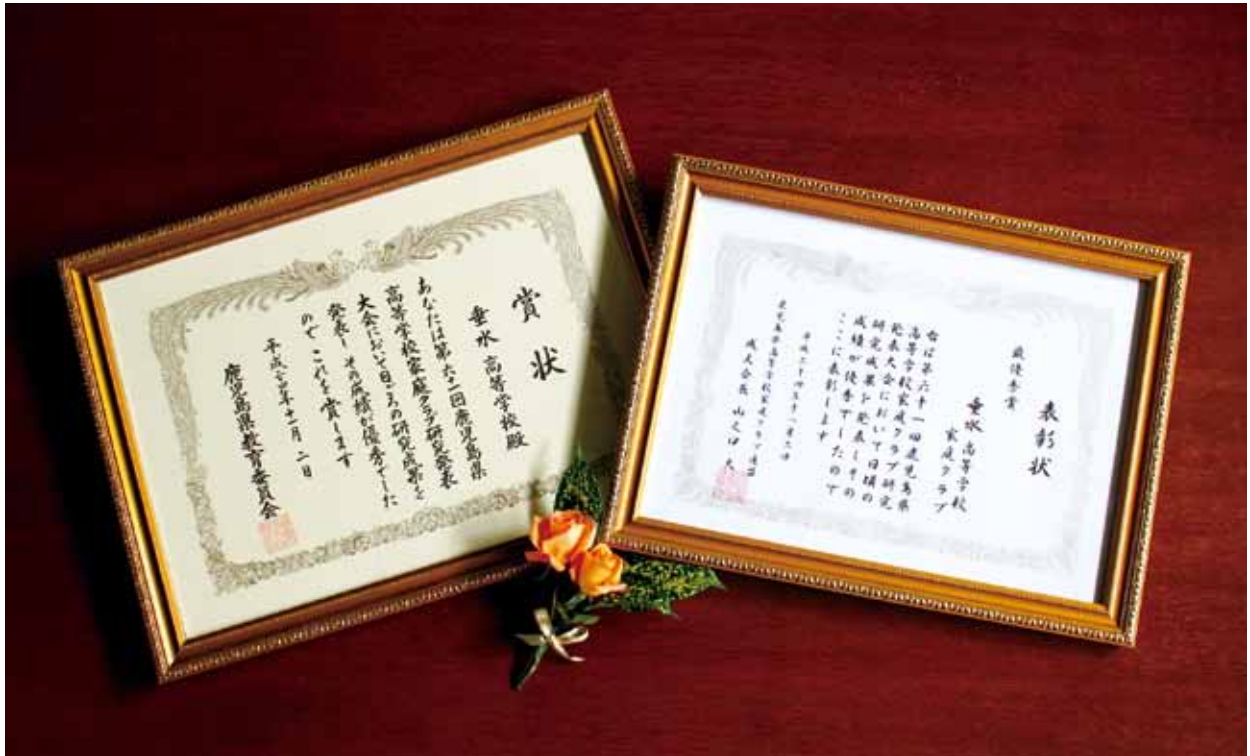 賞状
垂水高等学校殿
あなたは第六十一回鹿児島県
高等学校家庭クラブ研究発表
大会において日ごろの研究成果を
発表し その成績が優秀でした
ので これを賞します
平成二十四年十一月二日
鹿児島県教育委員会
表彰状
最優秀賞
垂水高等学校
家庭クラブ
右は第六十一回鹿児島県
高等学校家庭クラブ研究
発表大会において日頃の
研究成果を発表しその
成績が優秀でしたので
ここに表彰します
平成二十四年十一月二日
鹿児島県高等学校家庭クラブ連盟
成人会長 山之口